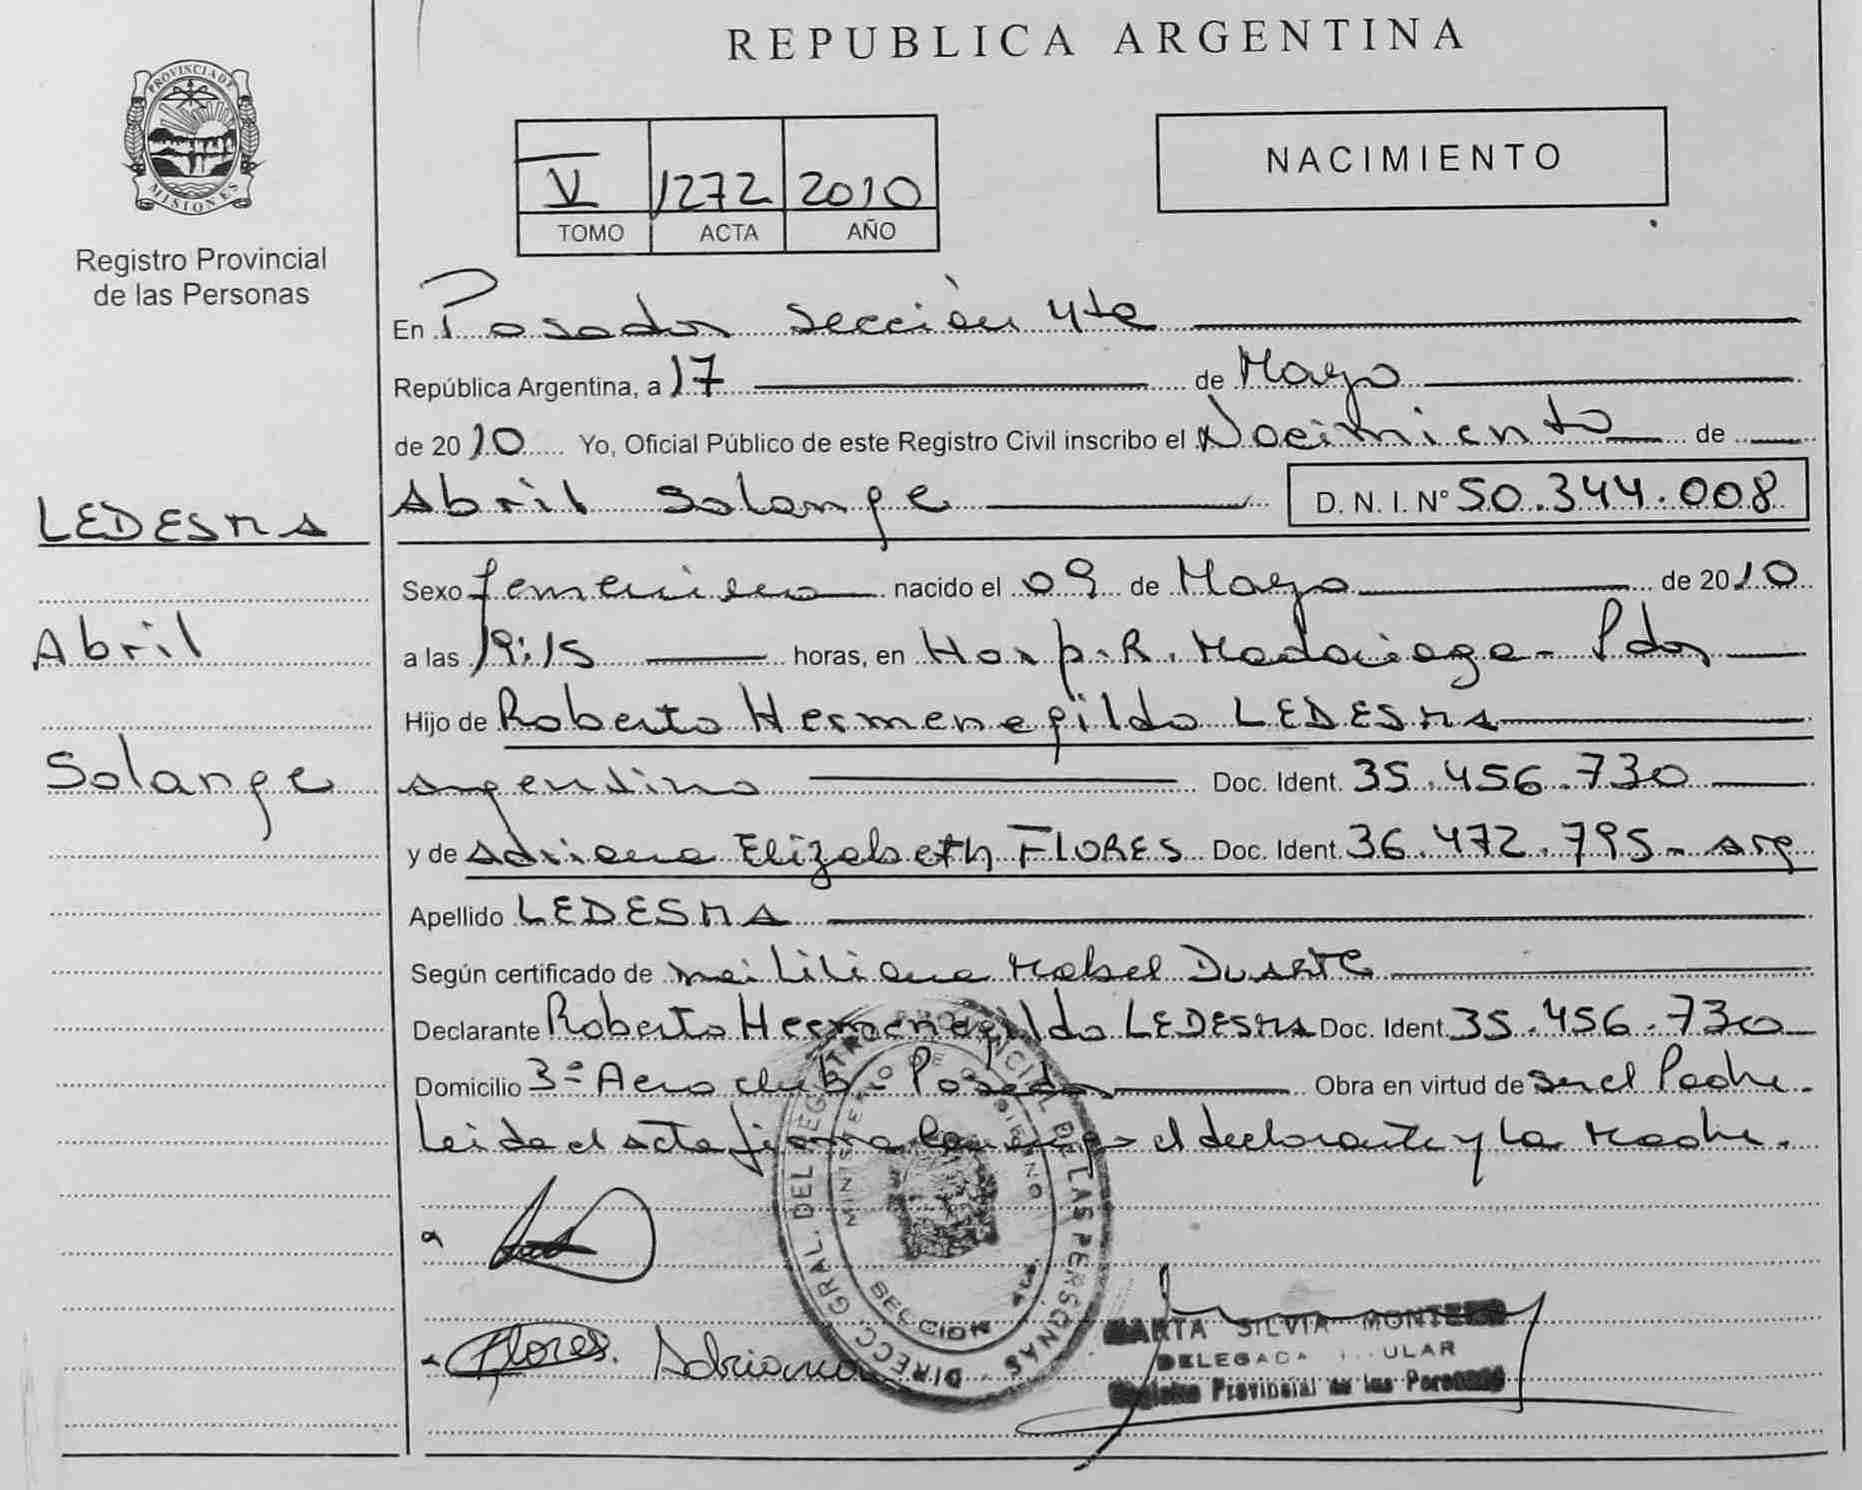 REPUBLICA ARGENTINA
PROVINCIA DE
MISIONES
Registro Provincial
de las Personas
V 1272 2010
TOMO ACTA AÑO
NACIMIENTO
En Posadas Sección 4ta
República Argentina, a 17 de Mayo
de 2010 Yo, Oficial Público de este Registro Civil inscribo el Nacimiento de
LEDESMA
Abril Solange D. N. I. Nº 50.344.008
Sexo femenino nacido el 09 de Mayo de 2010
Abril
a las 19:15 horas, en Hosp. R. Madariaga - Pdas
Hijo de Roberto Hermenegildo LEDESMA
Solange
argentino Doc. Ident. 35.456.730
y de Adriana Elizabeth FLORES Doc. Ident. 36.472.795 - arg
Apellido LEDESMA
Según certificado de Liliana Mabel Duarte
Declarante Roberto Hermenegildo LEDESMA Doc. Ident. 35.456.730
Domicilio Aero club - Posadas Obra en virtud de ser el Padre.
Leida el acta firma conmigo el declarante y la Madre.
DIRECC. GRAL. DEL REGISTRO PROVINCIAL DE LAS PERSONAS
MINISTERIO DE GOBIERNO
SECCION 4ta.
Flores. Adriana
MARTA SILVIA MONTERO
DELEGADA TITULAR
Registro Provincial de las Personas